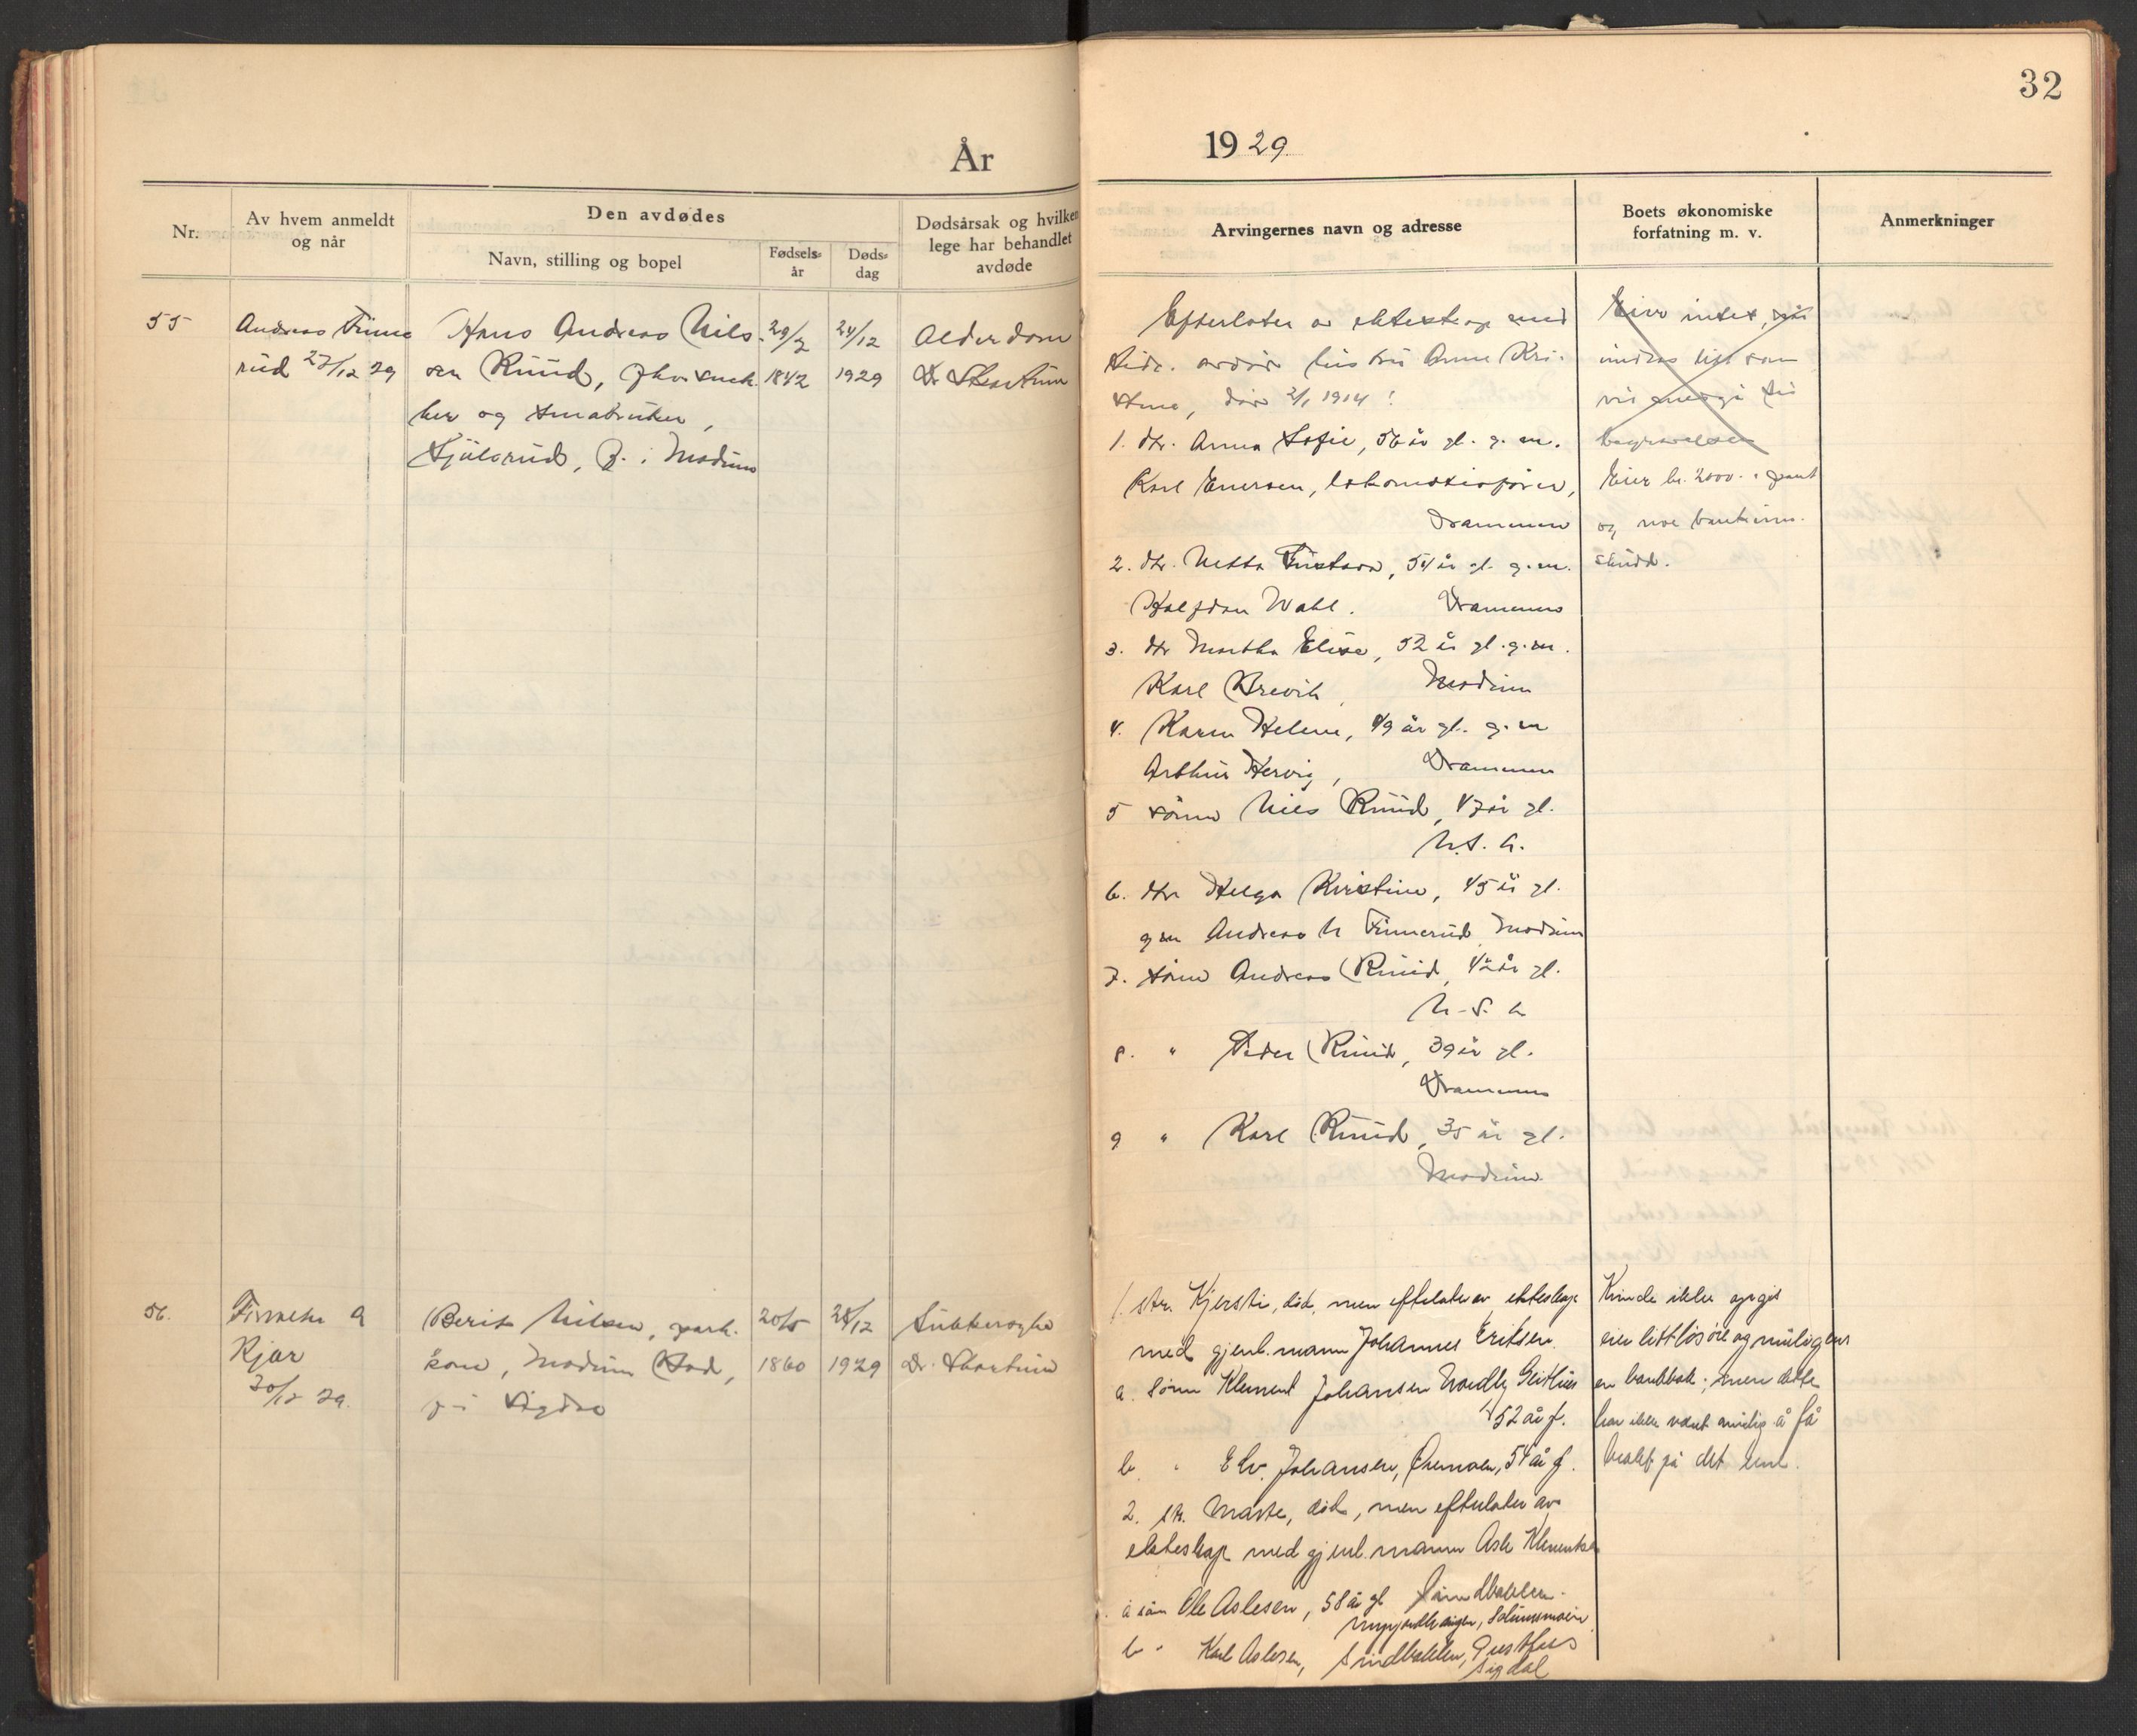 32
År
1929
Nr.
Av hvem anmeldt
og når
Den avdødes
Navn, stilling og bopel
Fødsels-
år
Døds-
dag
Dødsårsak og hvilken
lege har behandlet
avdøde
Arvingernes navn og adresse
Boets økonomiske
forfatning m. v.
Anmerkninger
55
Andreas Finne
rud 27/12 29
Hans Andreas Nils-
sen Ruud, fhv.
og småbruker,
f. i Modum
29/7
1842
24/12
1929
Alderdom
Dr
Efterlater av ekteskap med
tidl. avdøde hustru Anne Kri-
stine, død 2/1 1914:
1. dtr. Anna Sofie, 56 år gl. g. m.
Karl Enersen, lokomotivfører,
Drammen
2. dtr. Netta Gustava, 54 år gl. g. m.
Halfdan Wahl. Drammen
3. dtr Martha Elise, 52 år gl. g. m.
Karl Brevik, Modum
4. Karen Helene, 49 år gl. g. m
Arthur Hervig, Drammen
5 sønn Nils Ruud, 47 år gl.
U.S.A.
6. dtr Helga Kristine, 45 år gl.
g m Andreas N Finnerud Modum
7. sønn Andreas Ruud, 42 år gl.
U.S.A
8. " Peder Ruud, 39 år gl.
Drammen
9 " Karl Ruud, 35 år gl.
Modum
Eier intet,
som
begravelsen
Eier kr. 2000.- i pant
og noe bankinn-
skudd.
56.
A
Kjør
30/12 29.
Berit Nilsen,
kone, Modum Bad,
f i Sigdal
20/5
1860
28/12
1929
Sukkersyke
Dr.
1. str. Kjersti, død, men efterlater av ekteskap
med gjenl. mann Johannes Eriksen.
a. sønn Klement Johansen Geithus
52 år g.
b " Johansen, 54 år g.
2. str. Marte, død, men efterlater av
ekteskap med gjenl. mann Asle Klementsen
a sønn Ole Aslesen, 58 år gl
b " Karl Aslesen,
Sigdal
Kunde ikke opgis
eier litt løsøre og muligens
en bankbok; men dette
har ikke vært mulig å få
på det